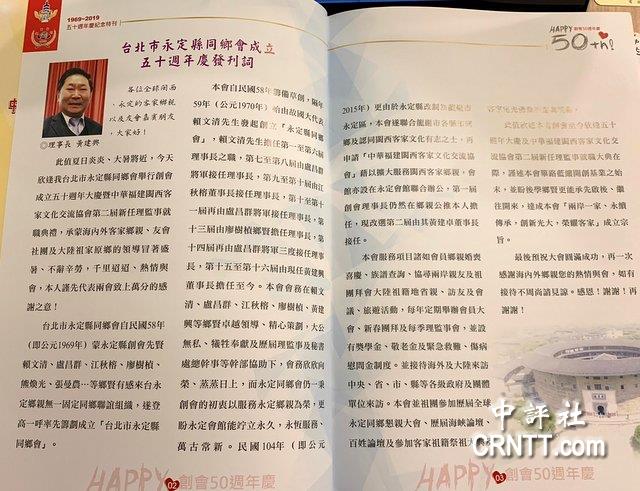 1969~2019
五十週年慶紀念特刊
台北市永定縣同鄉會成立
五十週年慶發刊詞
各位全球閩西
、永定的客家鄉親
以及友會嘉賓朋友
,大家好!
◎理事長 黃建興
此值夏日炎炎、大暑將近,今天
欣逢我台北市永定縣同鄉會舉行創會
成立五十週年大慶暨中華福建閩西客
家文化交流協會第二屆新任理監事就
職典禮,承蒙海內外客家鄉親、友會
社團及大陸祖家原鄉的領導冒著盛
暑、不辭辛勞,千里迢迢、熱情與
會,本人謹先代表兩會致上萬分的感
謝之意!
台北市永定縣同鄉會自民國58年
(即公元1969年)蒙永定縣創會先賢
賴文清、盧昌群、江秋榕、廖樹楨、
熊煥光、張曼農…等鄉賢有感來台永
定鄉親無一固定同鄉聯誼組織,遂登
高一呼率先籌劃成立「台北市永定縣
同鄉會」。
本會自民國58年籌備草創,隔年
59年(公元1970年)始由故國大代表
賴文清先生發起創立「永定縣同鄉
會」,賴文清先生擔任第一至第六屆
理事長之職,第七至第八屆由盧昌群
將軍接任理事長,第九至第十屆由江
秋榕董事長接任理事長,第十至第十
一屆再由盧昌群將軍接任理事長,第
十三屆由廖樹楨鄉賢擔任理事長,第
十四屆再由盧昌群將軍三度接任理事
長,第十五至第十六屆由現任黃建興
董事長擔任至今。本會會務在賴文
清、盧昌群、江秋榕、廖樹楨、黃建
興等鄉賢卓越領導、精心策劃,大公
無私、犧牲奉獻及歷屆理監事及秘書
處總幹事等幹部協助下,會務欣欣向
榮、蒸蒸日上,而永定同鄉會仍一秉
創會的初衷以服務永定鄉親為榮,更
盼永定會館能竚立永久,永恆服務、
萬古常新。民國104年(即公元
HAPPY 02 創會50週年慶
HAPPY 創會50週年慶
50th!
2015年)更由於永定縣改制為龍巖市永
定區,本會遂聯合龍巖市各縣市同
鄉及認同閩西客家文化有志之士,再
申請「中華福建閩西客家文化交流協
會」藉以擴大服務閩西客家鄉親,會
館亦設在永定會館聯合辦公,第一屆
創會理事長仍然在鄉親公推本人擔
任,現改選第二屆由其黃建卓董事長
接任。
本會服務項目諸如會員鄉親婚喪
喜慶、族譜查詢、協尋兩岸親友及祖
團拜會大陸祖籍地省親、訪友及會
議、旅遊活動,每年定期舉辦會員大
會、新春團拜及每季理監事會,並設
有獎學金、敬老金及緊急救難、傷病
慰問金制度。並接待海外及大陸來訪
中央、省、市、縣等各級政府及團體
單位來訪。本會並組團參加歷屆全球
永定同鄉懇親大會、歷屆海峽論壇、
百姓論壇及參加客家祖籍祭祖大典
此欣逢永定同鄉會創會成立五十
週年大慶及中華福建閩西客家文化交
流協會第二屆新任理監事就職大典在
際,謹述本會篳路藍縷開創基業之始
末,並盼後學鄉賢更能承先啟後、繼
往開來,達成本會「兩岸一家、永續
傳承,創新光大,榮耀客家」成立宗
旨。
最後預祝大會圓滿成功,再一次
感謝海內外鄉親您的熱情與會,如有
接待不周尚請見諒。感恩!謝謝!再
謝謝!
HAPPY 03 創會50週年慶
中評社
CRNTT.com